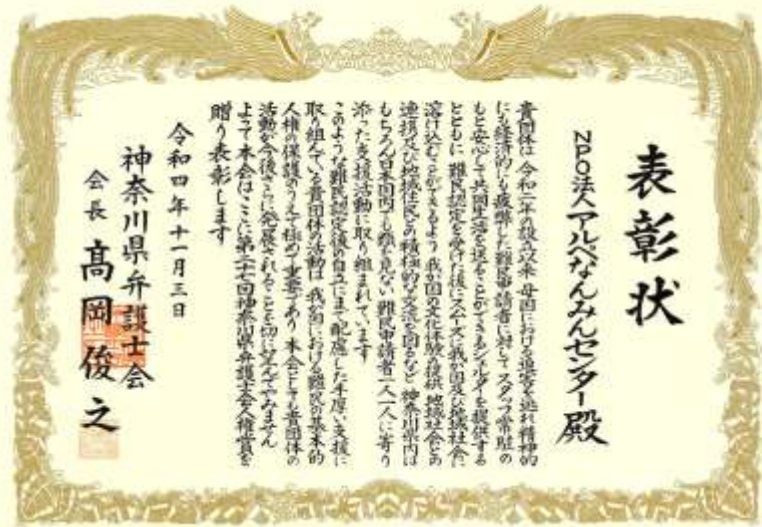 表彰状
NPO法人アルペなんみんセンター殿
貴団体は 令和二年の設立以来 母国における迫害を逃れ精神的
にも経済的にも疲弊した難民申請者に対して スタッフ常駐の
もと安心して共同生活を送ることができるシェルターを提供する
とともに 難民認定を受けた後にスムーズに我が国及び地域社会に
溶け込むことができるよう 我が国の文化体験の提供 地域社会との
連携及び地域住民との積極的な交流を図るなど 神奈川県内は
もちろん日本国内でも類を見ない 難民申請者一人一人に寄り
添った支援活動に取り組まれています
このような難民認定後の自立にまで配慮した手厚い支援に
取り組んでいる貴団体の活動は 我が国における難民の基本的
人権の保護のうえで極めて重要であり 本会としても貴団体の
活動が今後さらに発展されることを切に望んでやみません
よって本会はここに第二十七回神奈川県弁護士会人権賞を
贈り表彰します
令和四年十一月三日
神奈川県弁護士会
会長 髙岡俊之